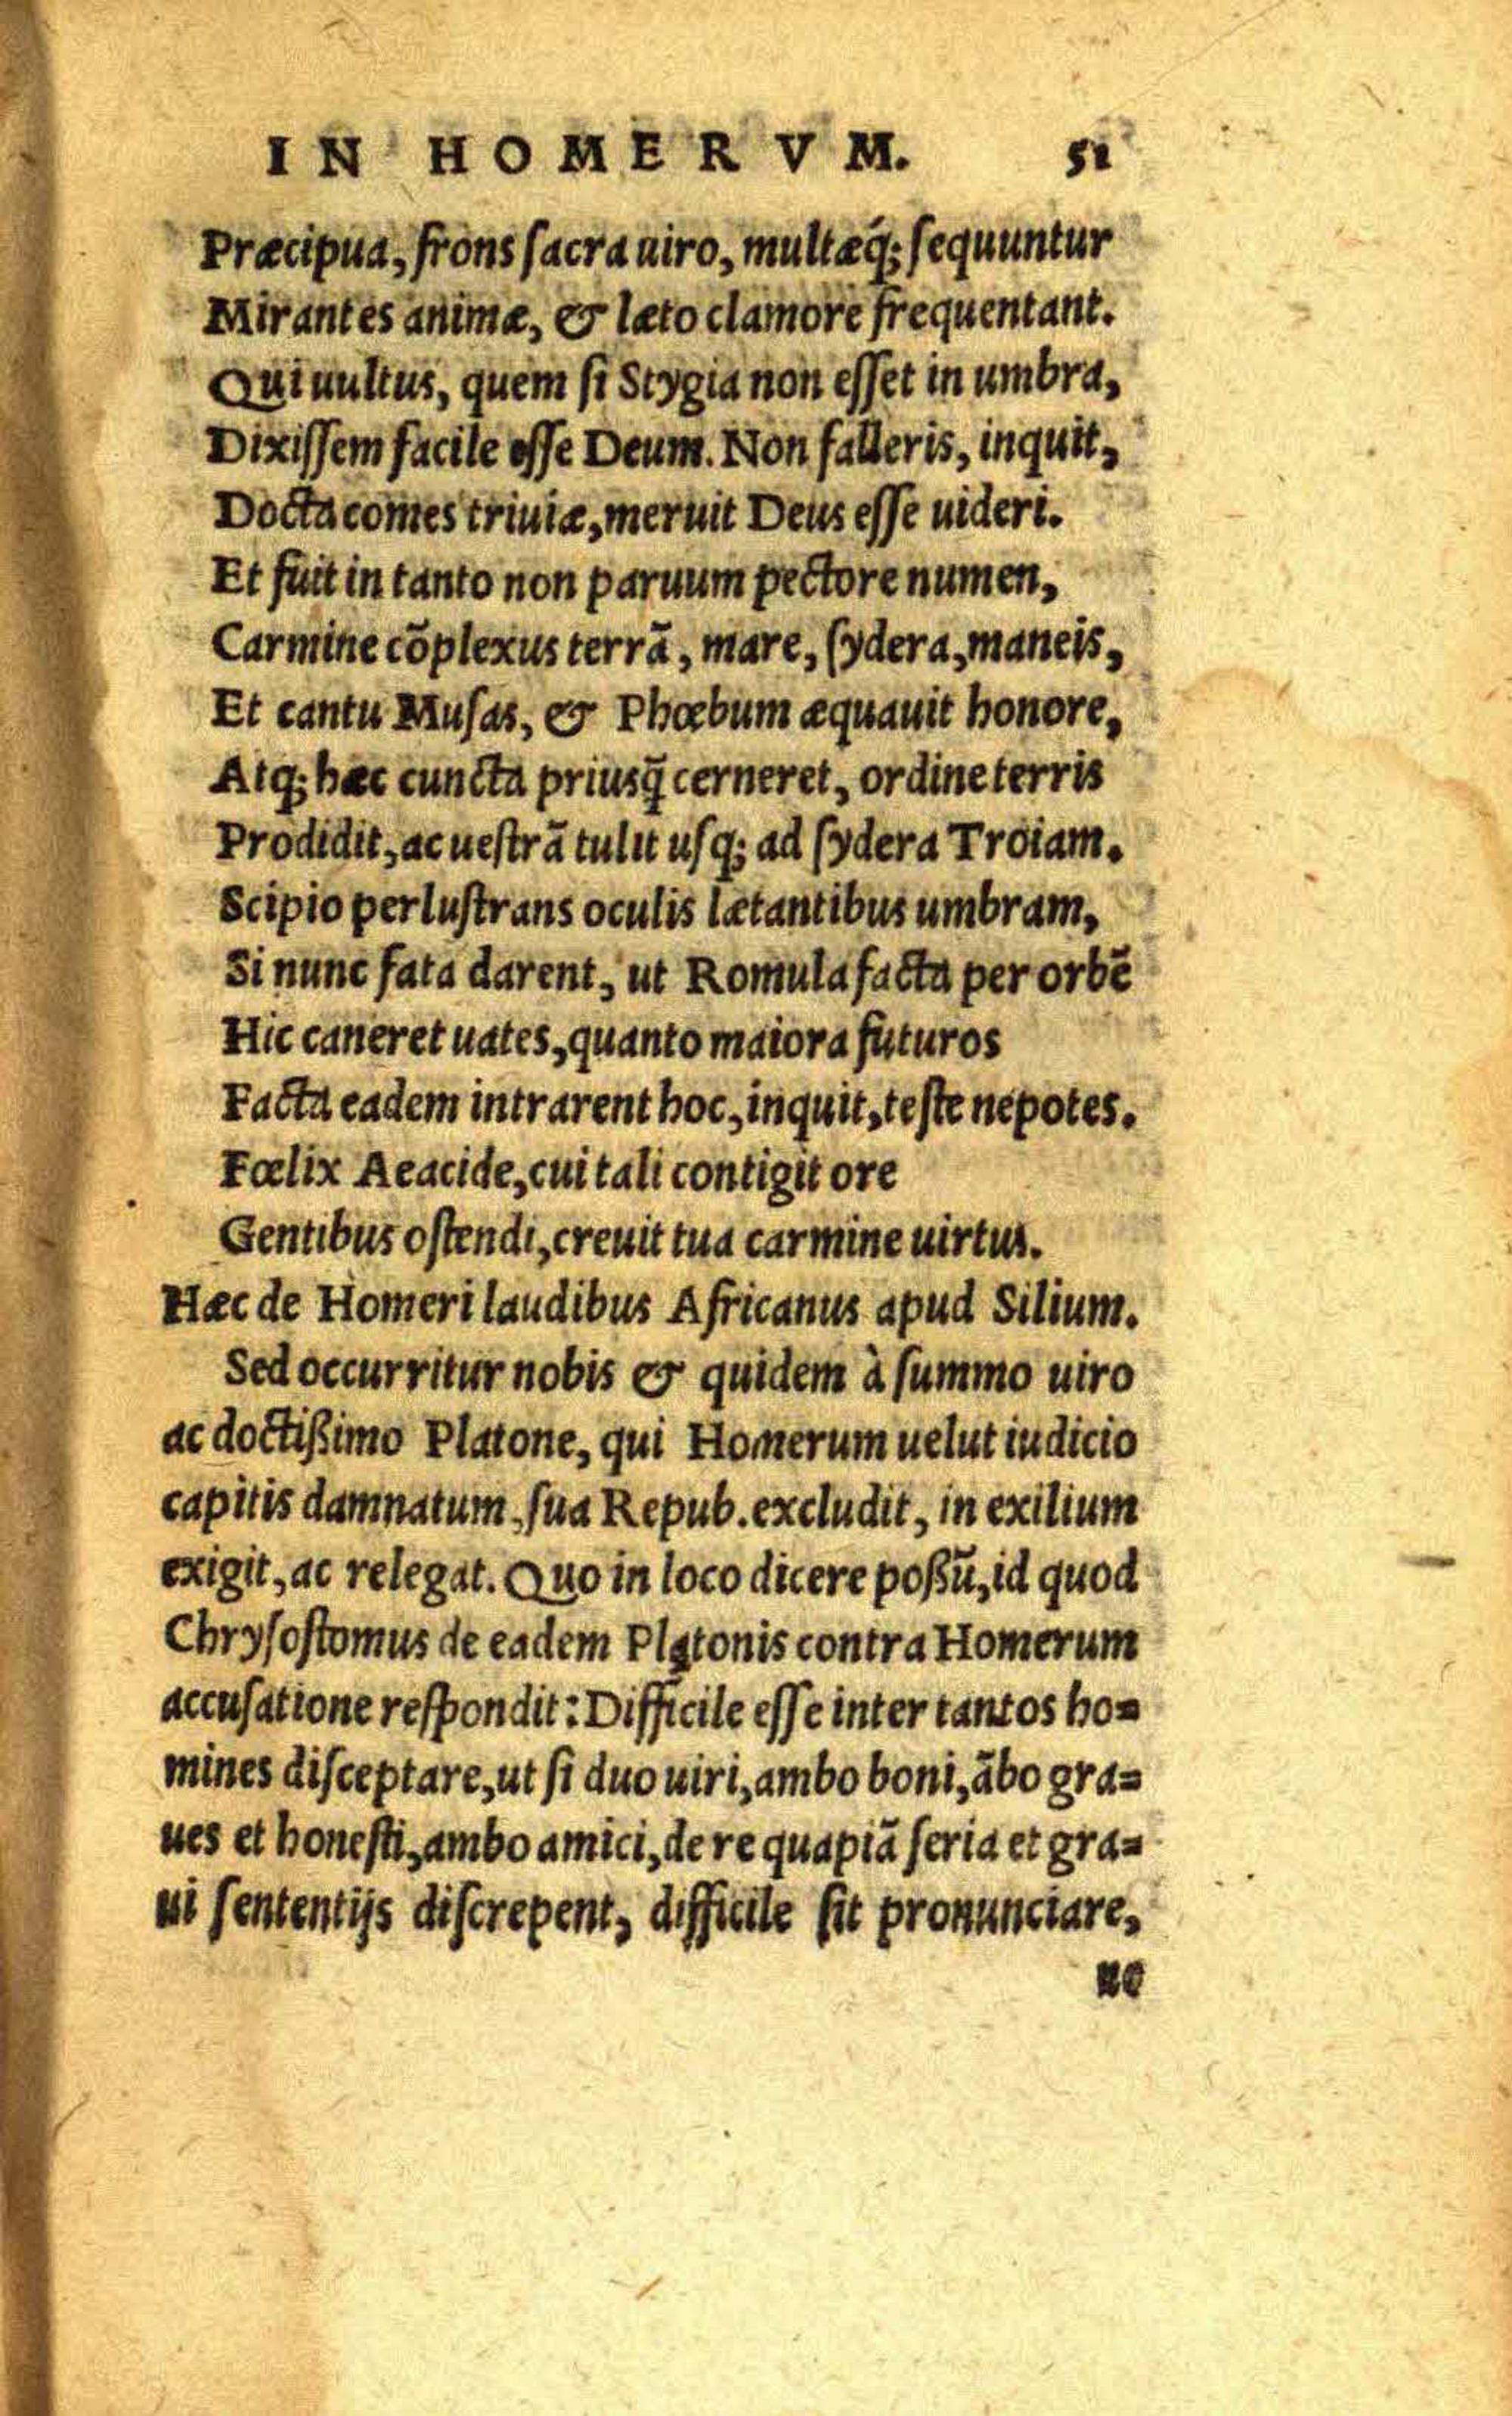 IN HOMERVM. 51
Præcipua, frons ſacra uiro, multæq́; ſequuntur
Mirantes animæ, & læto clamore frequentant.
Qui uultus, quem ſi Stygia non eſſet in umbra,
Dixiſſem facile eſſe Deum. Non falleris, inquit,
Docta comes triuiæ, meruit Deus eſſe uideri.
Et fuit in tanto non paruum pectore numen,
Carmine cõplexus terrã, mare, ſydera, maneis,
Et cantu Muſas, & Phœbum æquauit honore,
Atq; hæc cuncta priusq̃ cerneret, ordine terris
Prodidit, ac ueſtrã tulit uſq; ad ſydera Troiam.
Scipio perluſtrans oculis lætantibus umbram,
Si nunc fata darent, ut Romula facta per orbẽ
Hic caneret uates, quanto maiora futuros
Facta eadem intrarent hoc, inquit, teſte nepotes.
Fœlix Aeacide, cui tali contigit ore
Gentibus oſtendi, creuit tua carmine uirtus.
Hæc de Homeri laudibus Africanus apud Silium.
Sed occurritur nobis & quidem à ſummo uiro
ac doctißimo Platone, qui Homerum uelut iudicio
capitis damnatum, ſua Repub. excludit, in exilium
exigit, ac relegat. Quo in loco dicere poßũ, id quod
Chryſoſtomus de eadem Platonis contra Homerum
accuſatione reſpondit: Difficile eſſe inter tantos ho-
mines diſceptare, ut ſi duo uiri, ambo boni, ãbo gra-
ues et honeſti, ambo amici, de re quapiã ſeria et gra-
ui ſententijs diſcrepent, difficile ſit pronunciare,
ne